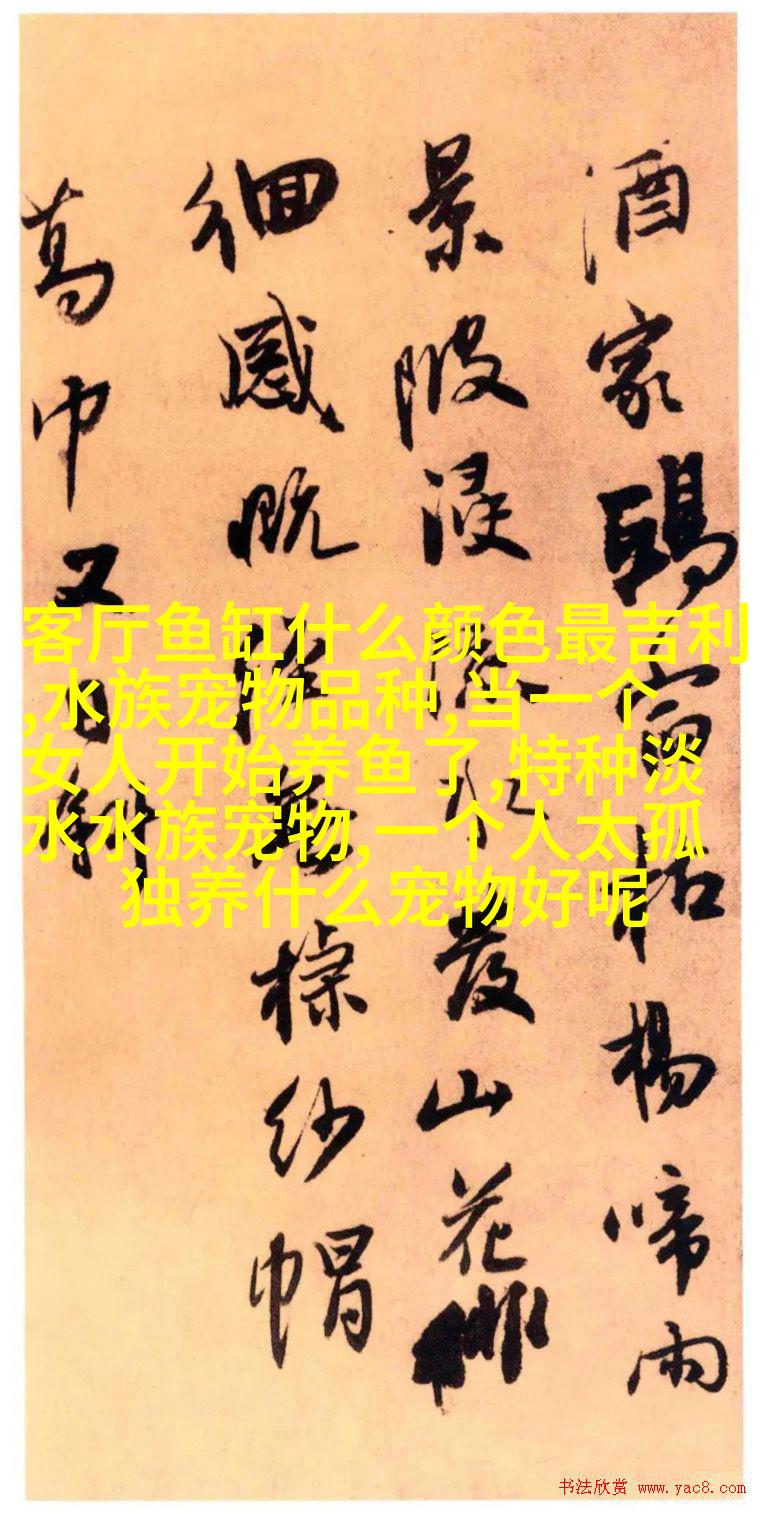 酒家鸥宿枯杨啼雨
景陂浸
发山花排
徊感慨
标纱帽
葛巾又
斜
客厅鱼缸什么颜色最吉利
,水族宠物品种,当一个
女人开始养鱼了,特种淡
水水族宠物,一个人太孤
独养什么宠物好呢
书法欣赏 www.yac8.com